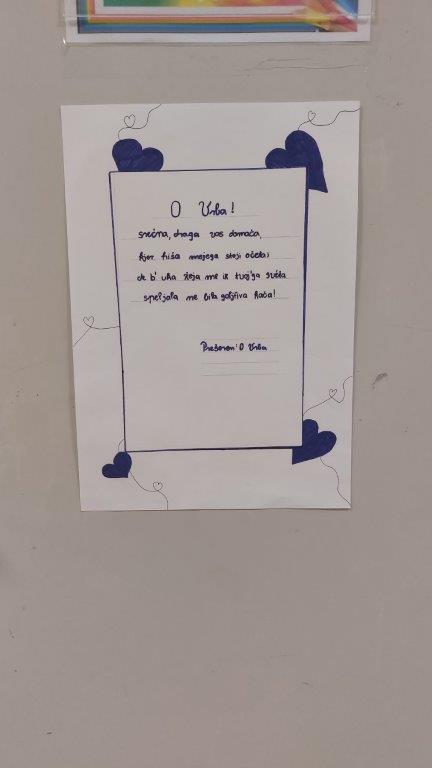 O Vrba!
srečna, draga vas domača,
kjer hiša mojega stoji očeta;
de b' uka žeja me iz tvoj'ga svéta
speljala ne bila goljfiva kača!
Prešeren: O Vrba